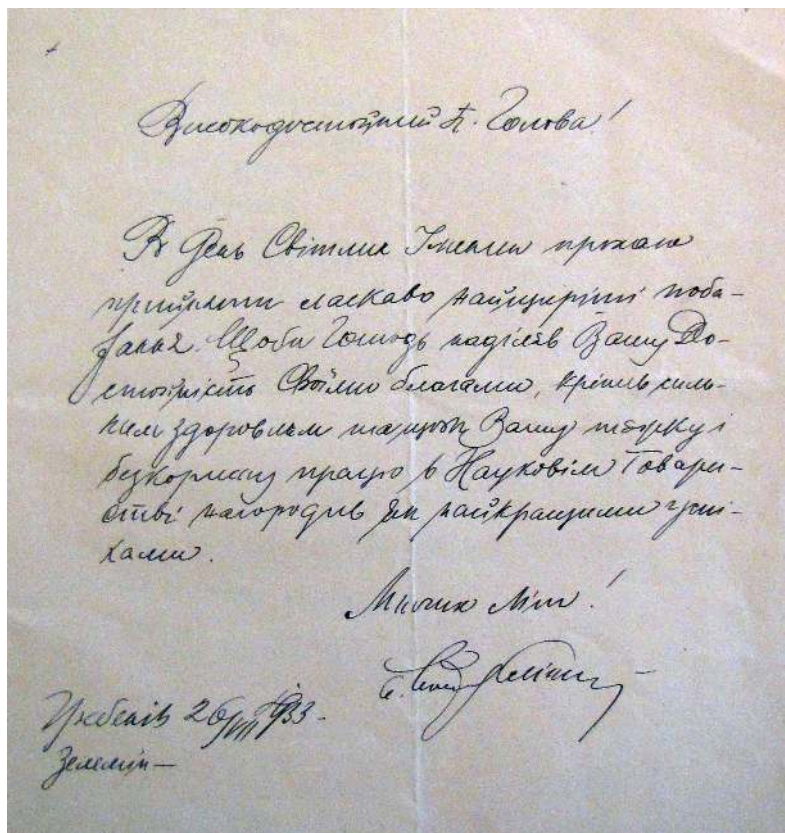 Високодостойний П. Голова!
В День Світлих Іменин прохаю
прийняти ласкаво найщирійші поба-
жання. Щоби Господь наділяв Вашу До-
стойність Своїми благами, кріпив силь-
ним здоровлєм та щоби Вашу тяжку і
безкорисну працю в Науковім Товари-
стві нагородив як найкращими успі-
хами.
Многих Літ!
Гребенів 26/VII 1933.